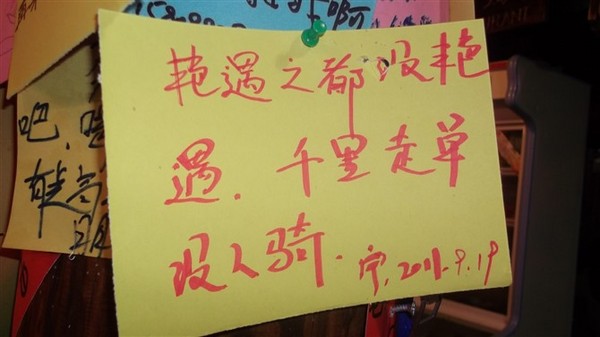 啊
艳遇之都没艳
遇．千里走单
没人骑．宁．2011.9.19
吧．
有